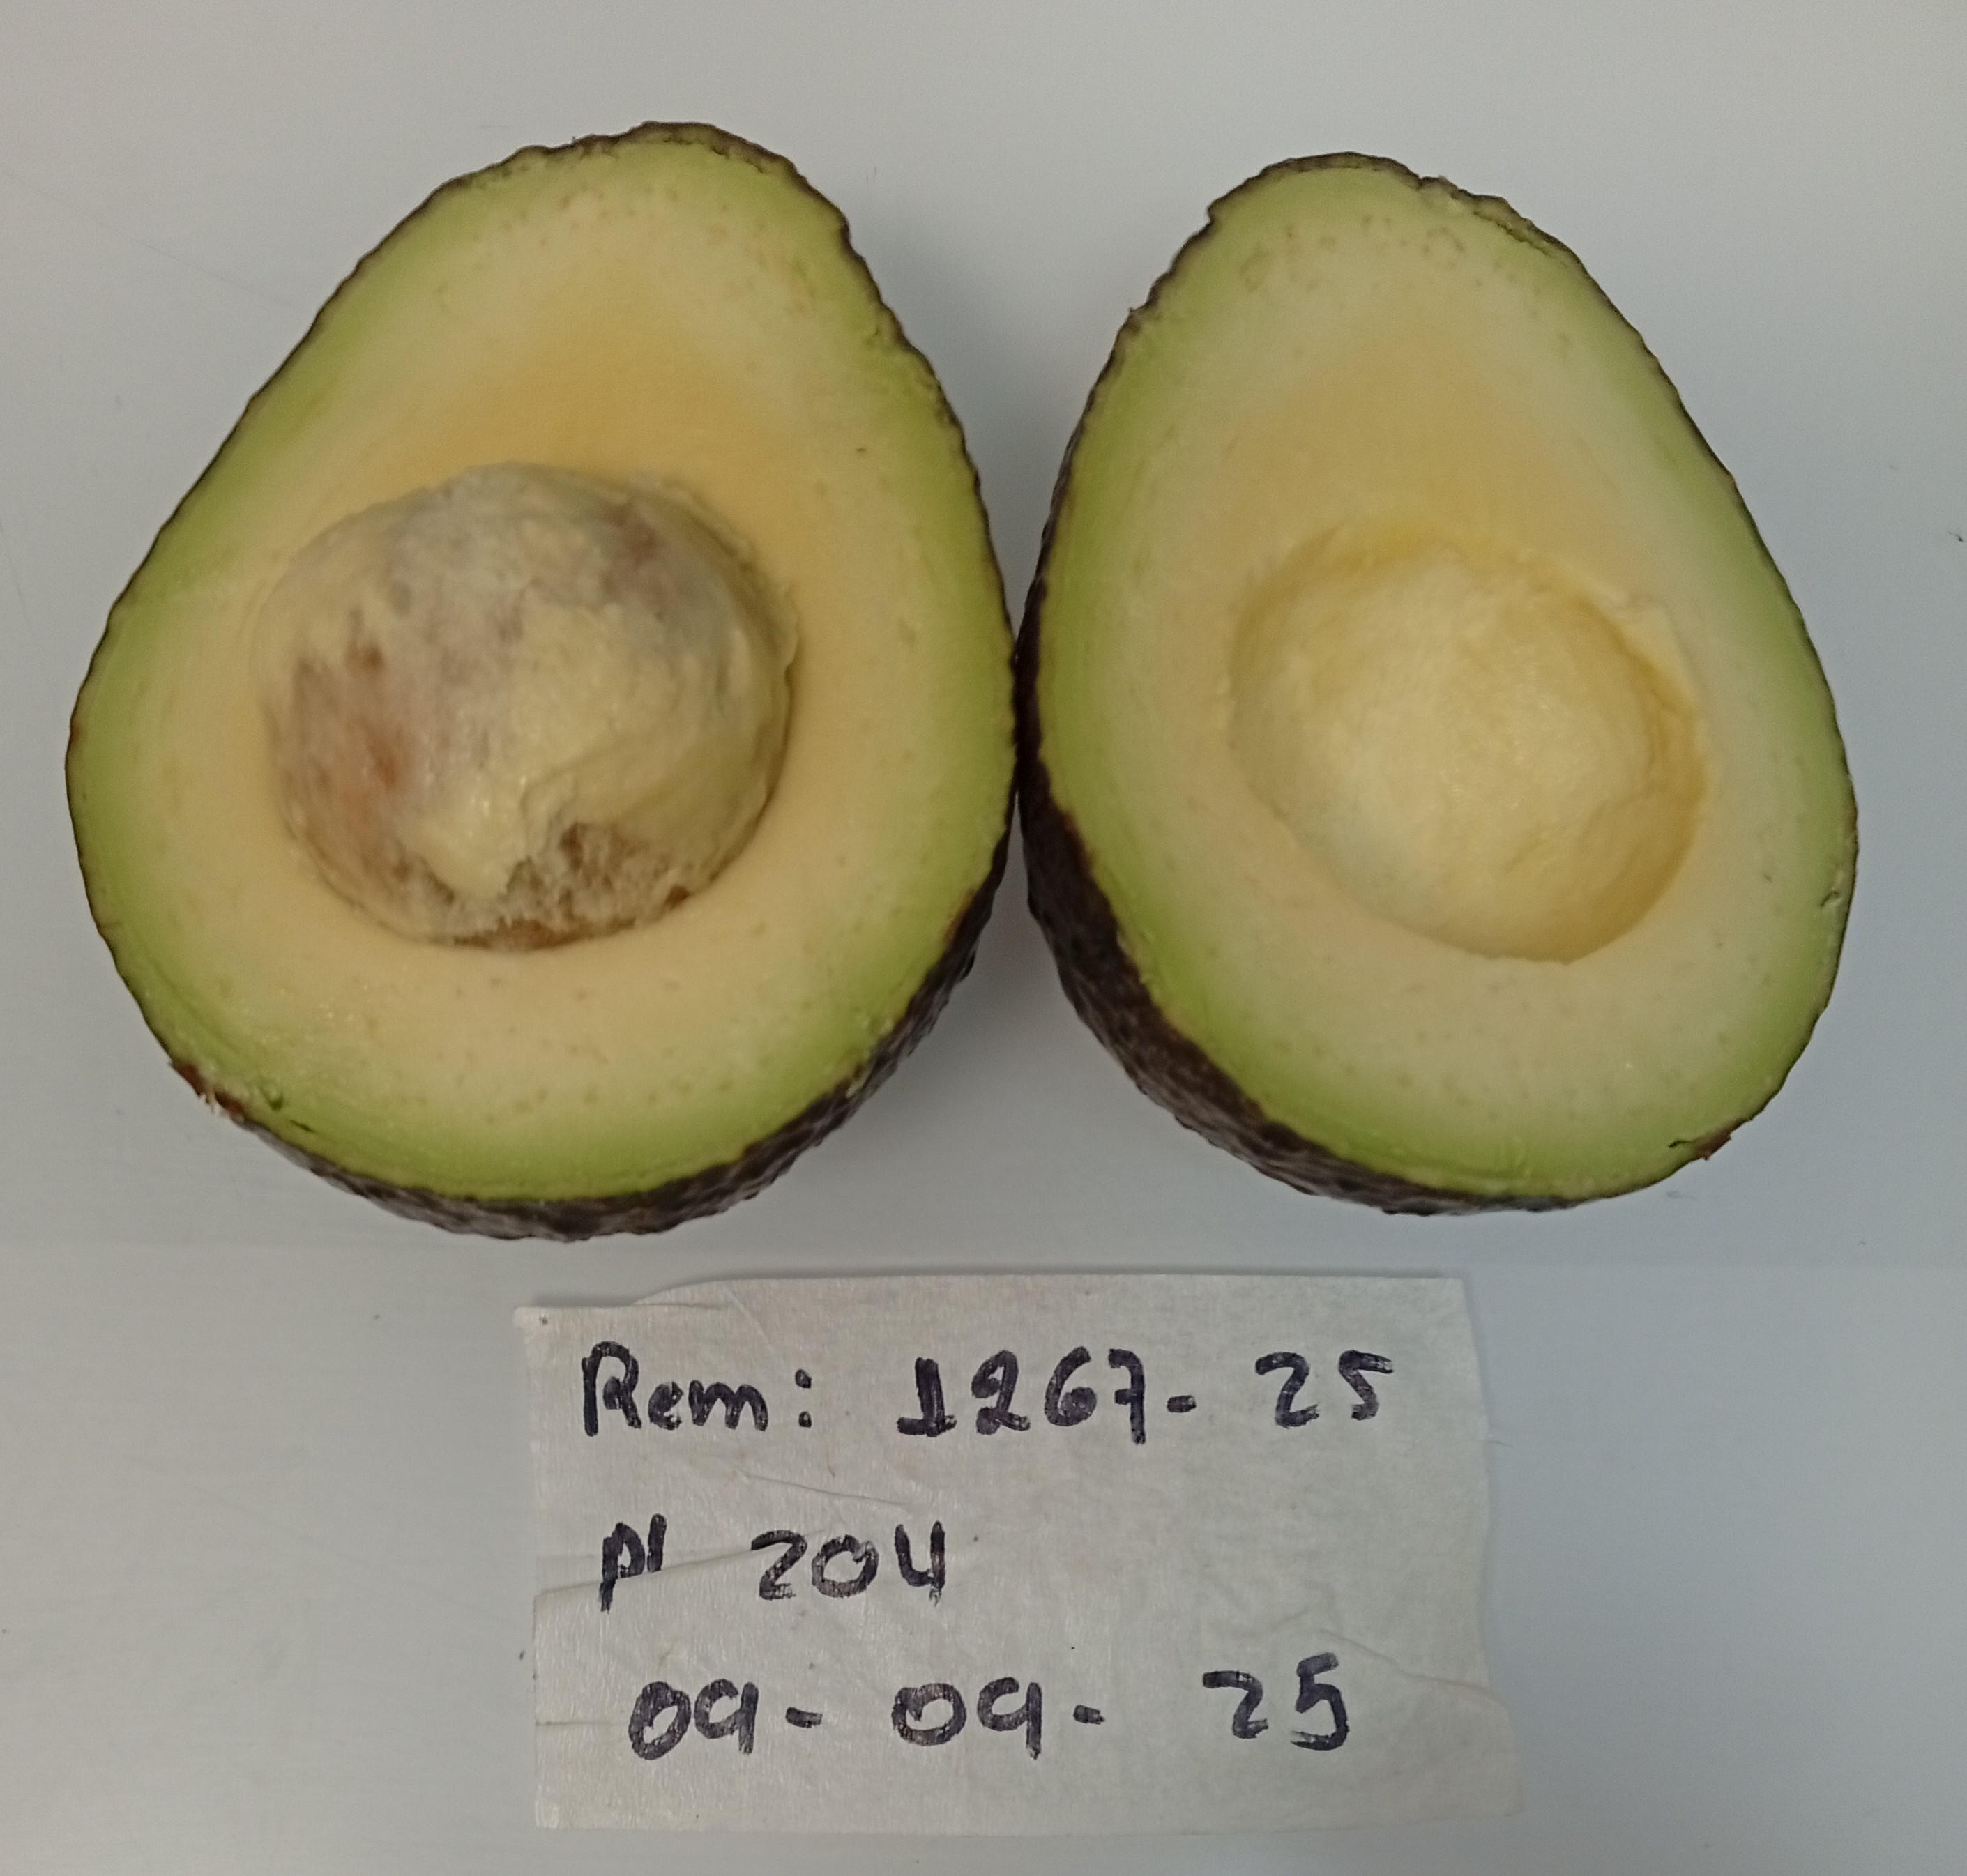 Rem: 1267- 25
Pl 204
09- 09- 25